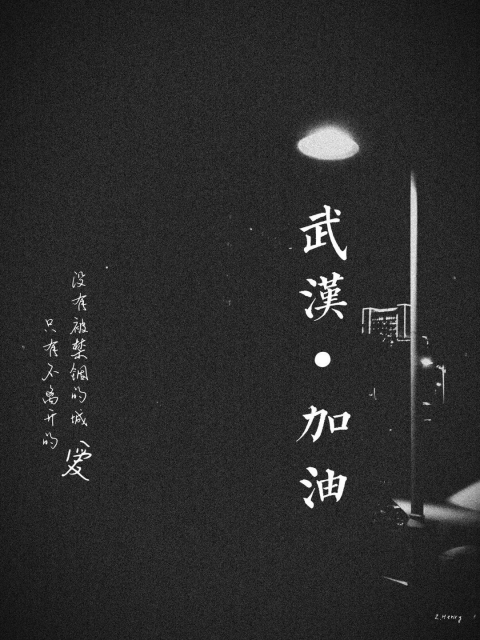 武漢·加油
没有被禁锢的城
只有不离开的爱
L.Henry